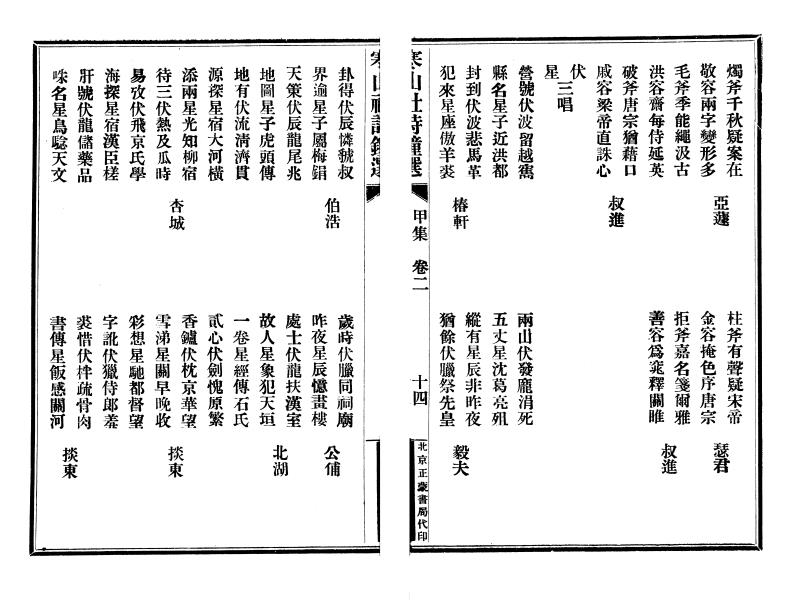 燭斧千秋疑案在
敬容兩字變形多
亞蘧
柱斧有聲疑宋帝
金容掩色序唐宗
瑟君
毛斧季能繩汲古
洪容齋每侍延英
拒斧嘉名箋爾雅
善容為窕釋關雎
叔進
破斧唐宗猶藉口
戚容梁帝直誅心
叔進
伏
星
三唱
營號伏波留越雋
縣名星子近洪都
兩山伏發龐涓死
五丈星沈葛亮殂
封到伏波悲馬革
犯來星座傲羊裘
椿軒
縱有星辰非昨夜
猶餘伏臘祭先皇
毅夫
寒山社詩鐘選
甲集
卷二
十四
北京正蒙書局代印
卦得伏辰憐虢叔
界逾星子屬梅鋗
伯浩
歲時伏臘同祠廟
昨夜星辰憶畫樓
公俌
天策伏辰龍尾兆
地圖星子虎頭傳
處士伏龍扶漢室
故人星象犯天垣
北湖
地有伏流淸濟貫
源探星宿大河橫
一卷星經傳石氏
貳心伏劍愧原繁
添兩星光知柳宿
待三伏熱及瓜時
杏城
香鑪伏枕京華望
雪涕星關早晚收
掞東
易攷伏飛京氏學
海探星宿漢臣槎
彩想星馳都督望
字訛伏獵侍郎羞
肝號伏龍儲藥品
咮名星鳥驗天文
裘惜伏拌疏骨肉
書傳星飯感關河
掞東